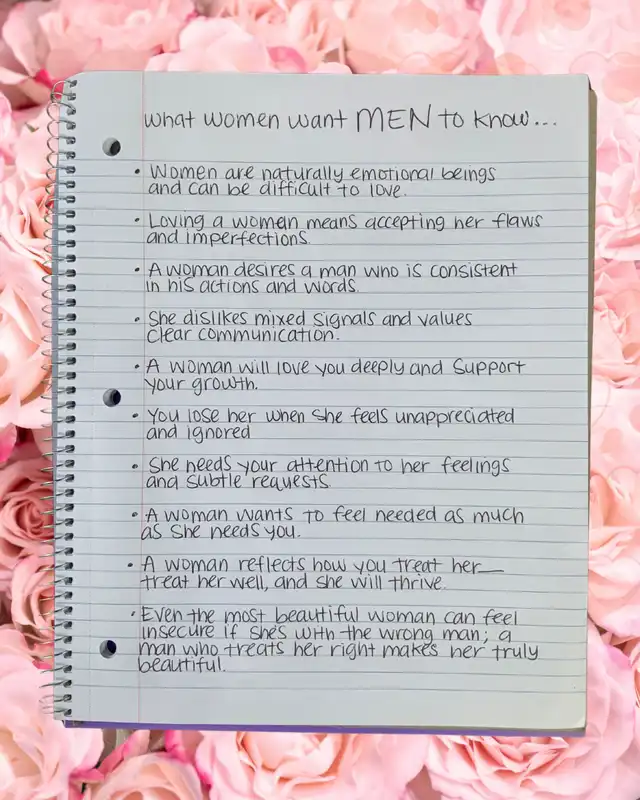 what women want MEN to know...
• Women are naturally emotional beings
and can be difficult to love.
• Loving a woman means accepting her flaws
and imperfections.
• A woman desires a man who is consistent
in his actions and words.
• She dislikes mixed signals and values
clear communication.
• A woman will love you deeply and support
your growth.
• You lose her when she feels unappreciated
and ignored
• She needs your attention to her feelings
and subtle requests
• A woman wants to feel needed as much
as she needs you.
• A woman reflects how you treat her—
treat her well, and she will thrive.
• Even the most beautiful woman can feel
insecure if she's with the wrong man; a
man who treats her right makes her truly
beautiful.